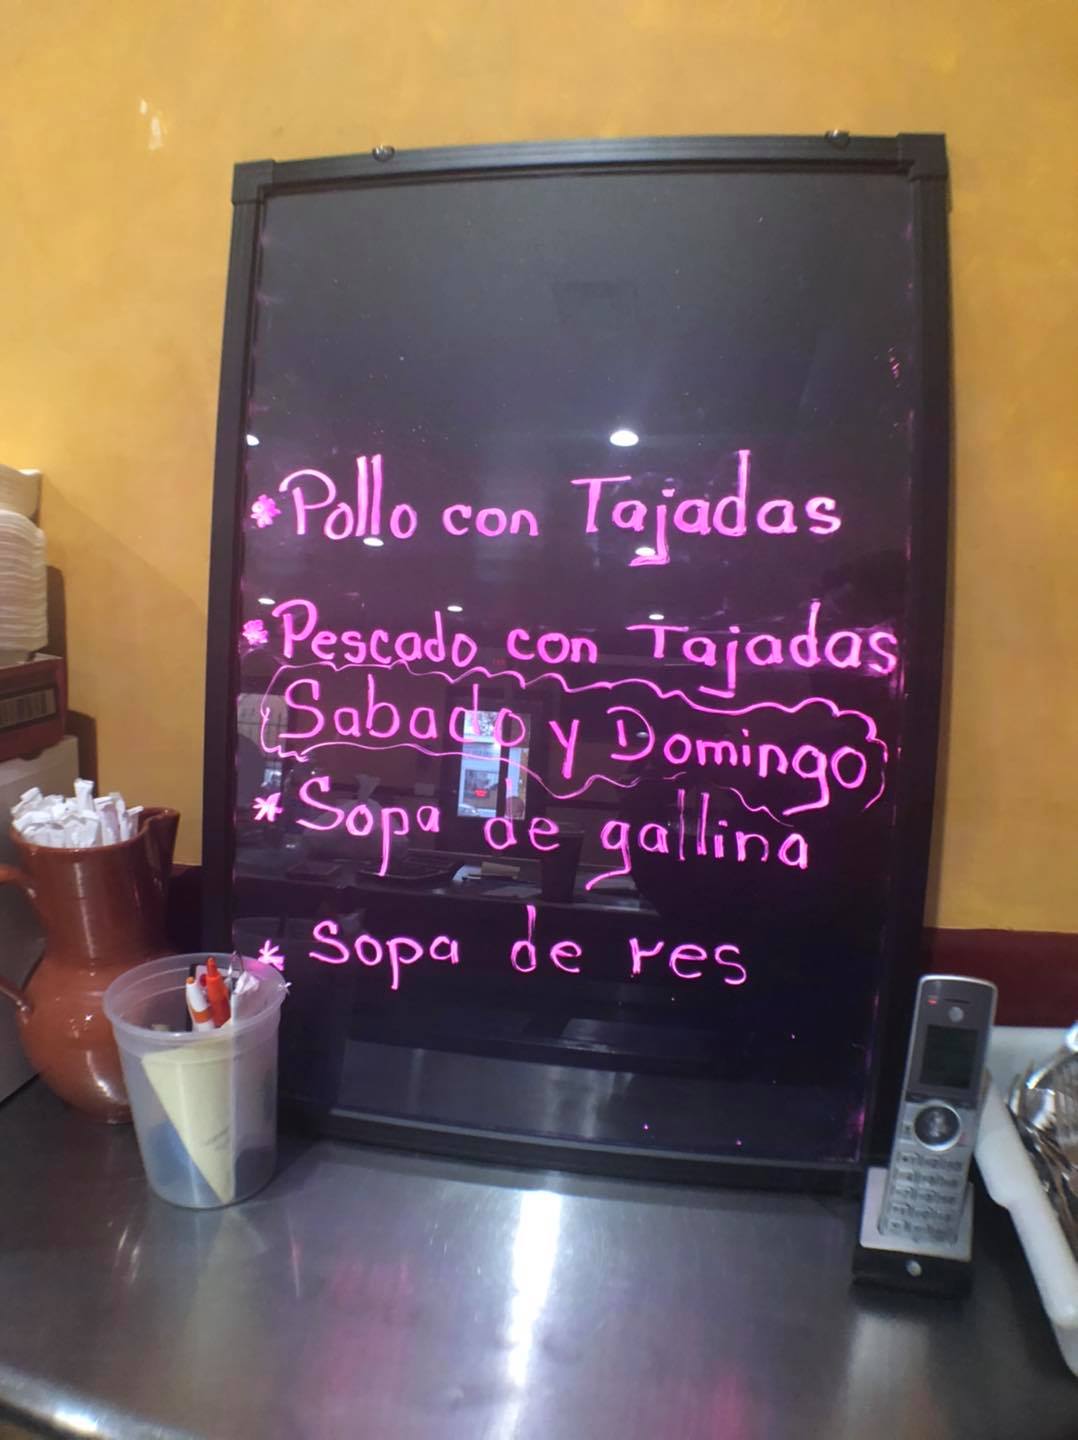 * Pollo con Tajadas
* Pescado con Tajadas
Sabado y Domingo
* Sopa de gallina
* Sopa de res